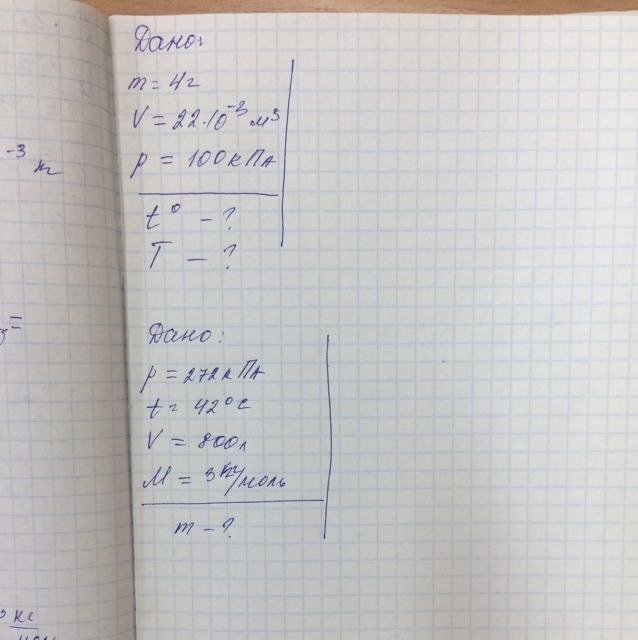 Дано:
m = 4г
V = 22·10⁻³ м³
p = 100кПа
t° - ?
T - ?
-3 кг
Дано:
p = 272кПа
t = 42°C
V = 800л
M = 3кг/моль
m - ?
кг